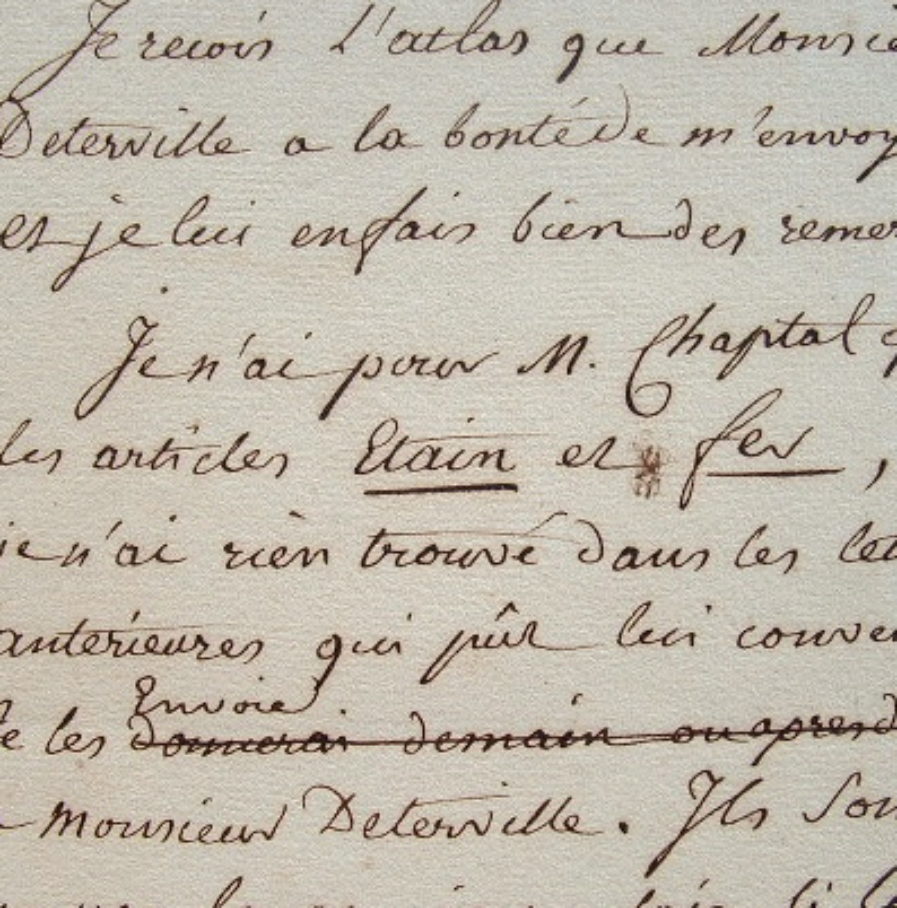 Je recois L'atlas que Monsie
Deterville a la bonté de m'envoy
et je lui en fais bien des remer
Je n'ai pour M. Chaptal q
les articles Etain et fer,
je n'ai rien trouvé dans les let
anterieures qui pût lui conven
Envoie
Je les donnerai demain ou apresd
monsieur Deterville. Ils son